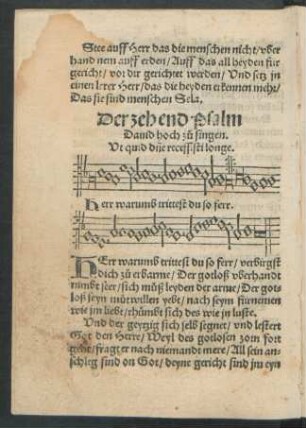 Stee auff Herr das die menschen nicht/ vber
hand nem auff erden/ Auff das all heyden für
gericht/ vor dir gerichtet werden/ Vnd setz jn
einen lerer Herr/ das die heyden erkennen mehr/
Das sie sind menschen Sela.
Der zehend Psalm
Dauid hoch zů singen.
Vt quid dñe recessisti longe.
Herr warumb trittest du so ferr.
HErr warumb trittest du so ferr/ verbirgst
dich zů erbarme/ Der gotloß vberhandt
nimbt seer/ sich můß leyden der arme/ Der got
loß seyn můtwillen yebt/ nach seym fürnemen
wie jm liebt/ rhůmbt sich des wie jn luste.
Vnd der geytzig sich selb segnet/ vnd lestert
Got den Herre/ Weyl des gotlosen zorn fort
gehe/ fragt er nach niemandt mere/ All sein an
schleg sind on Got/ deyne gericht sind jm eyn